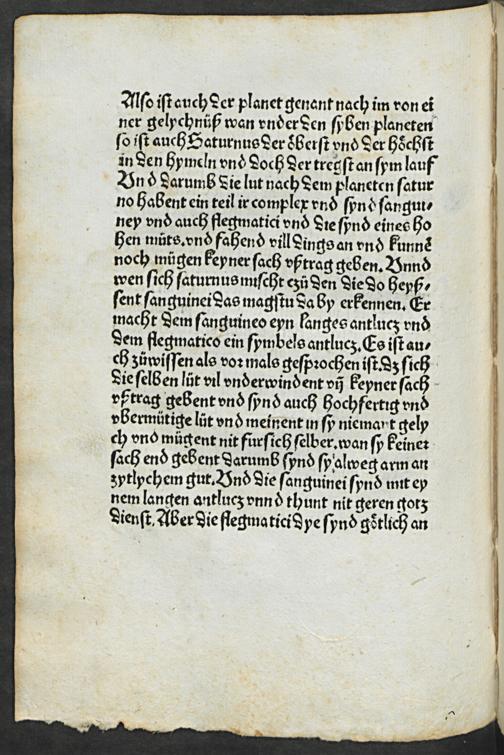 Also ist auch der planet genant nach im von ei
ner gelychnüß wan vnder den syben planeten
so ist auch Saturnus der öberst vnd der höchst
in den hymeln vnd doch der tregst an sym lauf
Vnd darumb die lut nach dem planeten satur
no habent ein teil ir complex vnd synd sangui⸗
ney vnd auch flegmatici vnd die synd eines ho
hen müts. vnd fahend vill dings an vnd kunnē
noch mügen keyner sach vßtrag geben. Vnnd
wen sich saturnus mischt czü den die do heyß⸗
sent sanguinei das magstu da by erkennen. Er
macht dem sanguineo eyn langes antlucz vnd
dem flegmatico ein symbels antlucz. Es ist au⸗
ch zü wissen als vor mals gesprochen ist. dz sich
die selben lüt vil vnderwindent vñ keyner sach
vßtrag gebent vnd synd auch hochfertig vnd
vbermütige lüt vnd meinent in sy niemant gely
ch vnd mügent nit fur sich selber. wan sy keiner
sach end gebent darumb synd sy alweg arm an
zytlychem gut. Vnd die sanguinei synd mit ey
nem langen antlucz vnnd thunt nit geren gotz
dienst. Aber die flegmatici dye synd götlich an